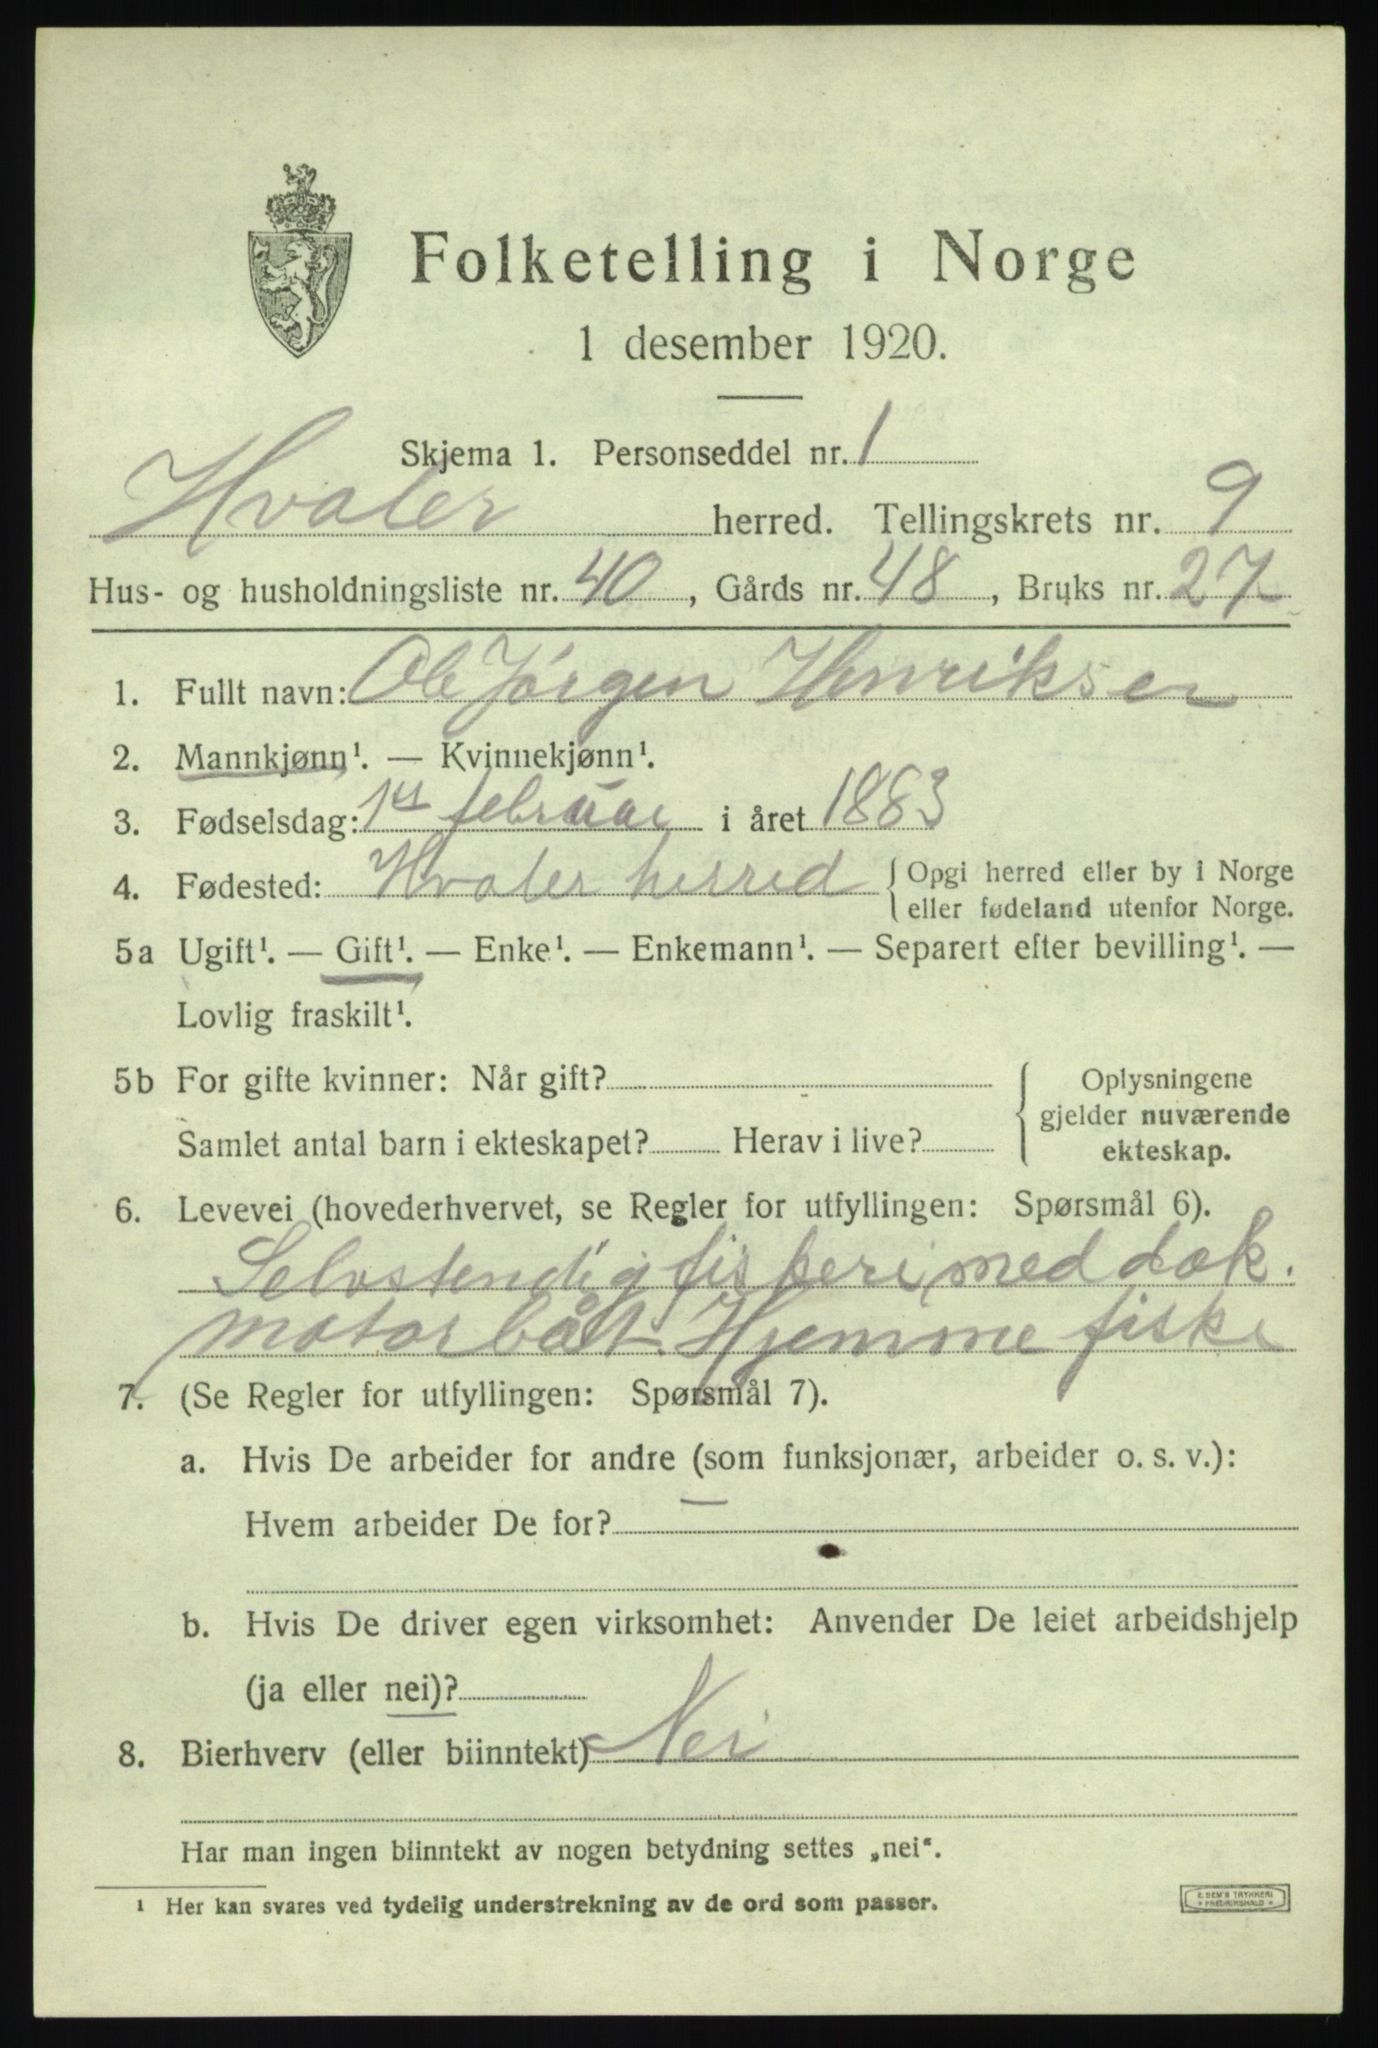 Folketelling i Norge
1 desember 1920.
Skjema 1. Personseddel nr. 1
Hvaler herred. Tellingskrets nr. 9
Hus- og husholdningsliste nr. 40, Gårds nr. 48, Bruks nr. 27
1. Fullt navn: Ole Jørgen Henriksen
2. Mannkjønn¹. — Kvinnekjønn¹.
3. Fødselsdag: 1ste februar i året 1883
4. Fødested: Hvaler herred { Opgi herred eller by i Norge
eller fødeland utenfor Norge.
5a Ugift¹. — Gift¹. — Enke¹. — Enkemann¹. — Separert efter bevilling¹. —
Lovlig fraskilt¹.
5b For gifte kvinner: Når gift?
Samlet antal barn i ekteskapet? Herav i live?
{ Oplysningene
gjelder nuværende
ekteskap.
6. Levevei (hovederhvervet, se Regler for utfyllingen: Spørsmål 6).
Selvstendig fiskeri, med dæk.
motorbåt. Hjemmefiske
7. (Se Regler for utfyllingen: Spørsmål 7).
a. Hvis De arbeider for andre (som funksjonær, arbeider o. s. v.):
Hvem arbeider De for? —
b. Hvis De driver egen virksomhet: Anvender De leiet arbeidshjelp
(ja eller nei)?
8. Bierhverv (eller biinntekt) Nei
Har man ingen biinntekt av nogen betydning settes „nei“.
¹ Her kan svares ved tydelig understrekning av de ord som passer.
E. SEM'S TRYKKERI
* FREDRIKSHALD *